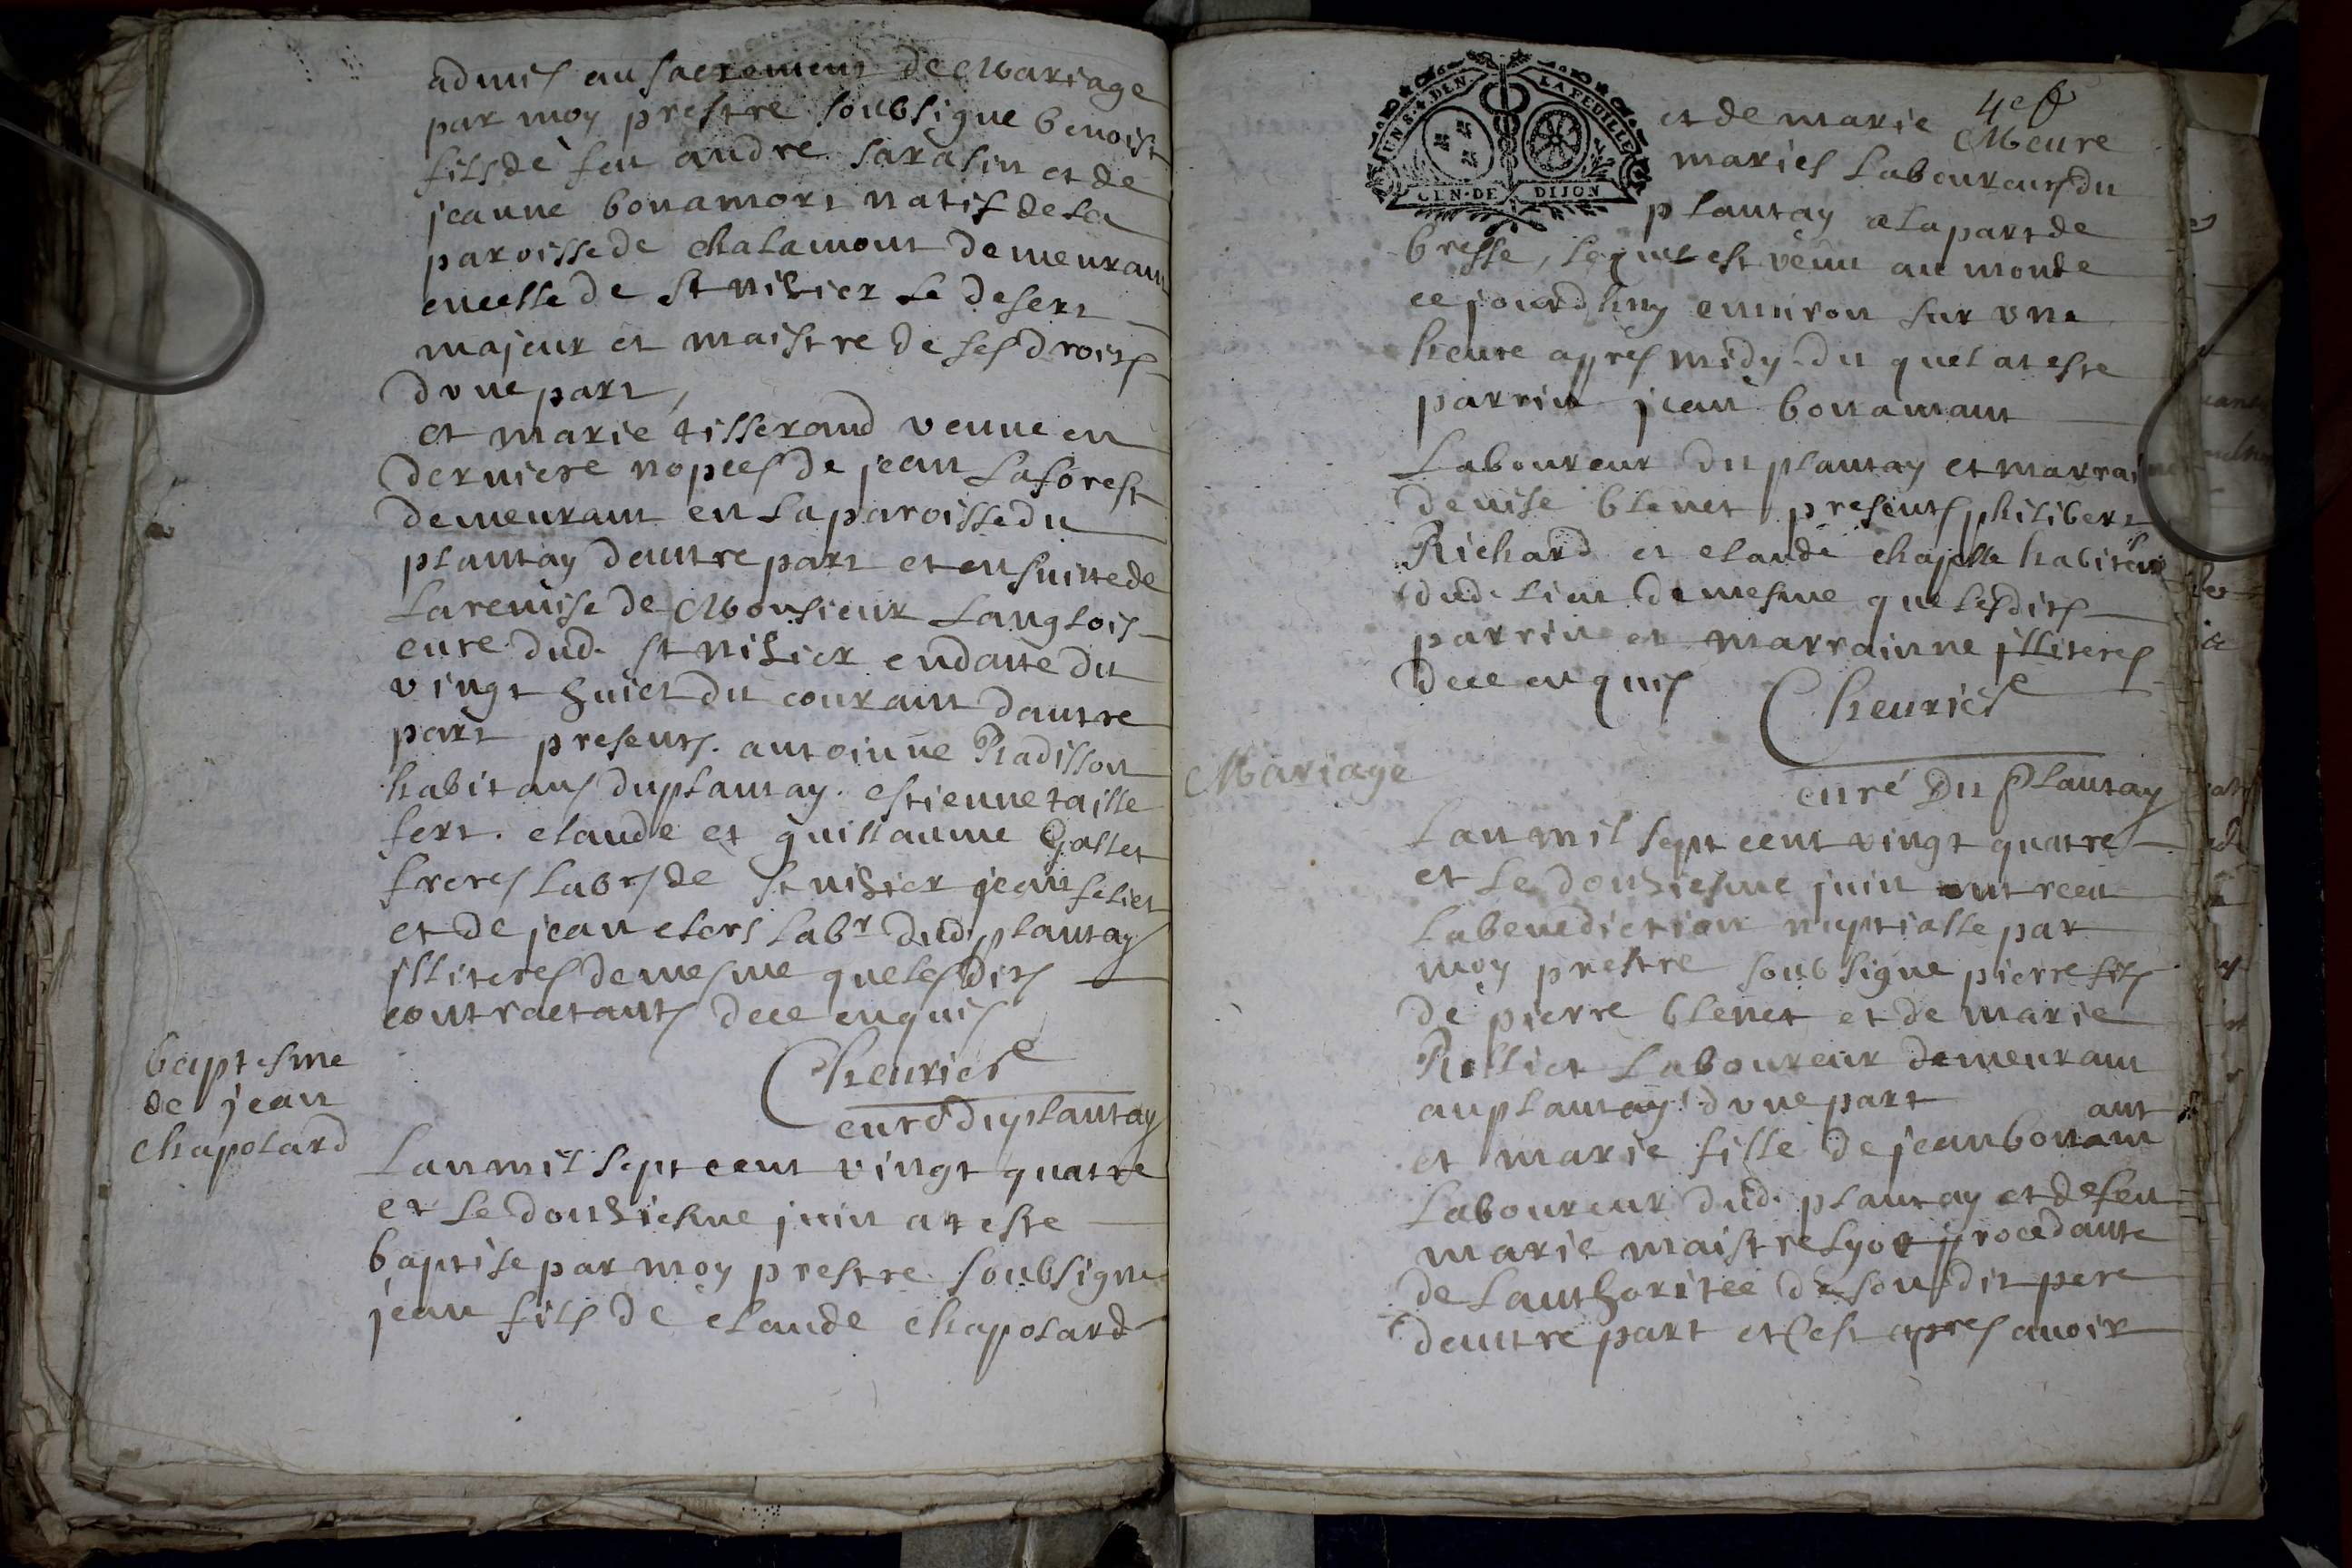 admis au sacrement de Mariage
par moy prestre soubsigne benoist
fils de feu andre sarasin et de
jeanne bonamort natif de la
paroisse de chalamont demeurant
en celle de st nizier le desert
majeur et maistre de ses droits
dune part,
et marie tisserand veuve en
derniere nopces de jean Laforest
demeurant en la paroisse du
plantay dautre part et en suitte de
la remise de Monsieur Langlois
curé dud. st nizier en datte du
vingt huict du courant dautre
part presents. antoinne Radisson
habitans du plantay. estienne taille
fert. claude et guillaume Gallet
freres labrs de st nizier jean feliet
et de jean clers labr dud plantay
illiteres de mesme que lesdits
contractants de ce enquis
Cheurier
curé du plantay
baptesme
de jean
chapolard
Lan mil sept cent vingt quatre
et le douziesme juin at este
baptise par moy prestre soubsigne
jean fils de claude chapolard
UN S. 4 DEN. LA FEUILLE
GEN. DE DIJON
4e f
et de marie Meure
maries Laboureurs du
plantay a la part de
bresse, lequel est venu au monde
ce jourdhuy environ sur une
heure apres midy. du quel at este
parrin jean bonamant
Laboureur du plantay et marraine
denise blenet presents philibert
Richard et claude chapelle habitans
dud. lieu de mesme que lesdits
parrin et marrainne illiteres
de ce enquis Cheurier
curé Du Plantay
Mariage
Lan mil sept cent vingt quatre
et le douziesme juin ont receu
la benediction nuptialle par
moy prestre soubsigne pierre fils
de pierre blenet et de marie
Rollict Laboureur demeurant
au plantay dune part
et marie fille de jean bonam
ant
Laboureur dud. plantay et de feu
marie maistre lyot procedante
de lauthoritee de son dit pere
dautre part et cest apres avoir